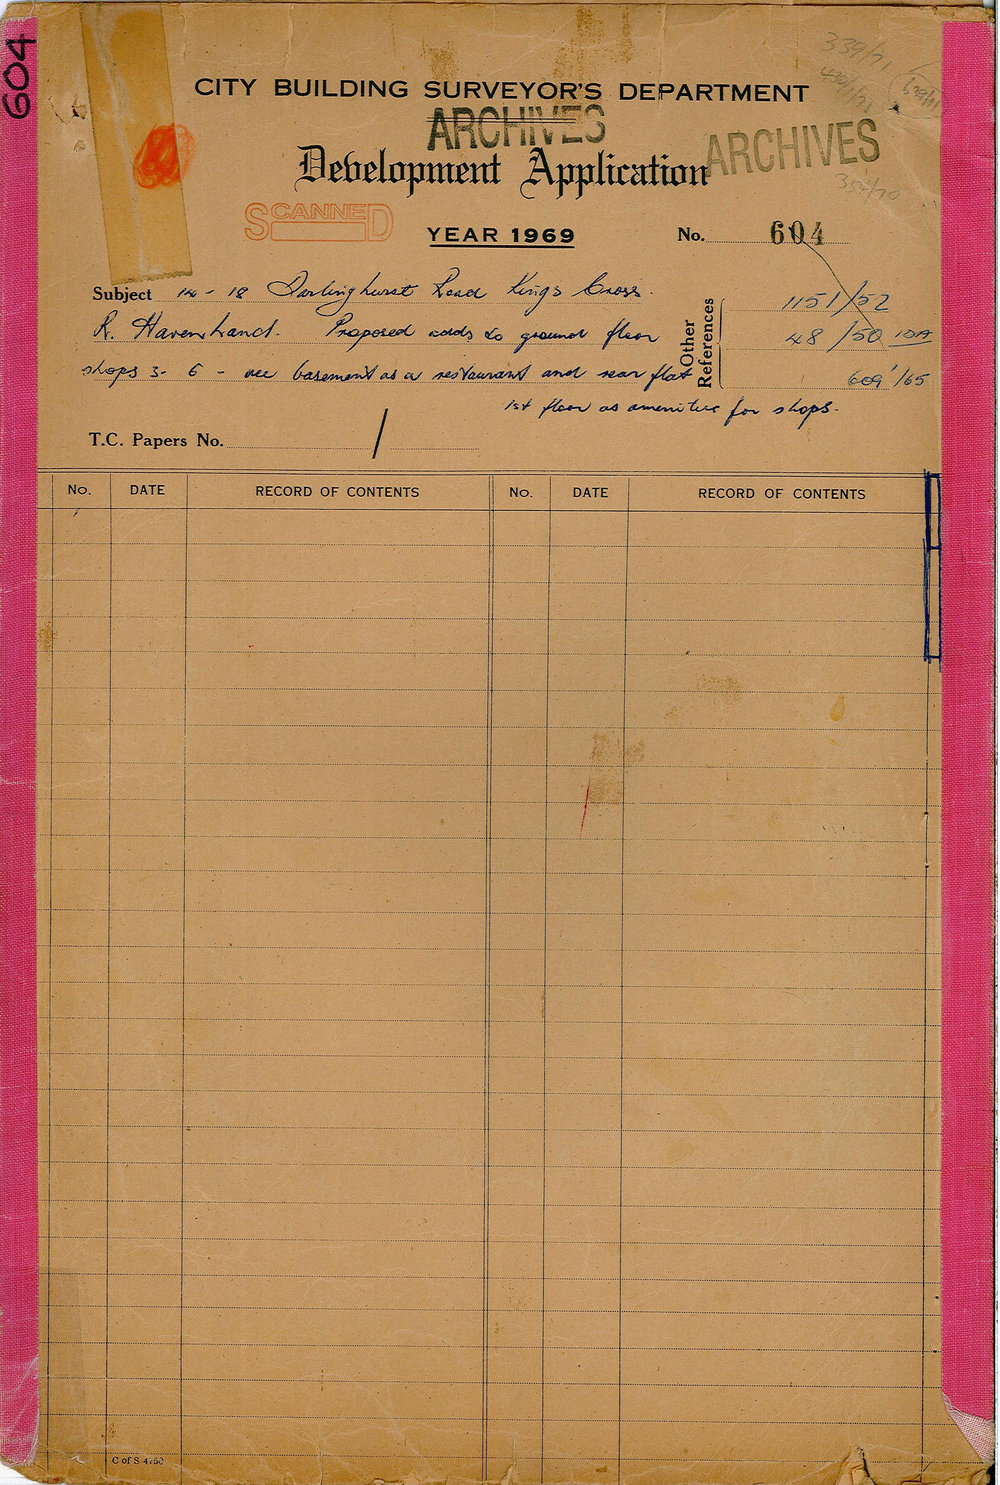 604
339/71
CITY BUILDING SURVEYOR'S DEPARTMENT
ARCHIVES
ARCHIVES
Development Application
354/70
SCANNED
YEAR 1969
No. 604
Subject 14 - 18 Darlinghurst Road Kings Cross.
R. Havenhand. Proposed adds to ground floor
shops 3 - 6 - use basement as a restaurant and rear flat
1st floor as amenities for shops.
Other References
1151/52
48/50 IDA
609/65
T.C. Papers No. /
No. DATE RECORD OF CONTENTS No. DATE RECORD OF CONTENTS
C of S 4750